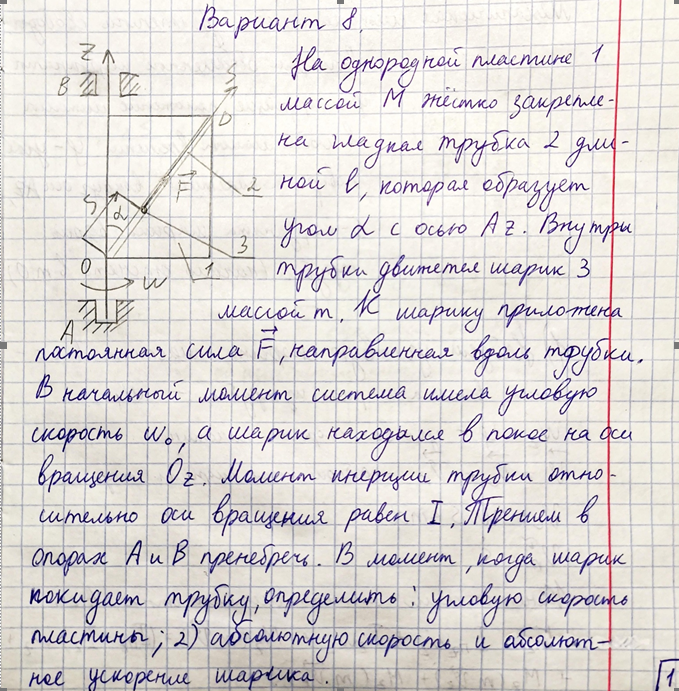 Вариант 8.
На однородной пластине 1
массой М жёстко закрепле-
на гладкая трубка 2 дли-
ной l, которая образует
угол α с осью Az. Внутры
трубки движется шарик 3
массой m. К шарику приложена
постоянная сила F⃗, направленная вдоль трубки.
В начальный момент система имела угловую
скорость w₀, а шарик находился в покое на оси
вращения Oz. Момент инерции трубки отно-
сительно оси вращения равен I. Трением в
опорах А и В пренебречь. В момент, когда шарик
покидает трубку, определить: угловую скорость
пластины; 2) абсолютную скорость и абсолют-
ное ускорение шарика.
Z
B
S
D
F⃗
2
S
α
3
O
1
W
A
1